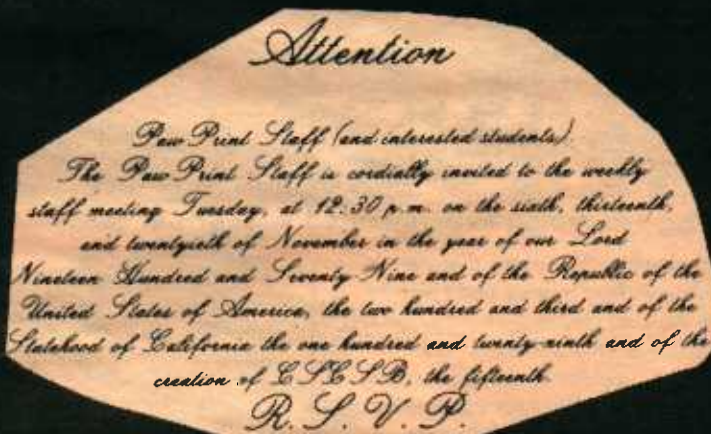 Attention
Paw Print Staff (and interested students)
The Paw Print Staff is cordially invited to the weekly
staff meeting Tuesday, at 12:30 p.m. on the sixth, thirteenth,
and twentyieth of November in the year of our Lord
Nineteen Hundred and Seventy Nine and of the Republic of the
United States of America, the two hundred and third and of the
Statehood of California the one hundred and twenty-ninth and of the
creation of CSCSB, the fifteenth.
R.S.V.P.